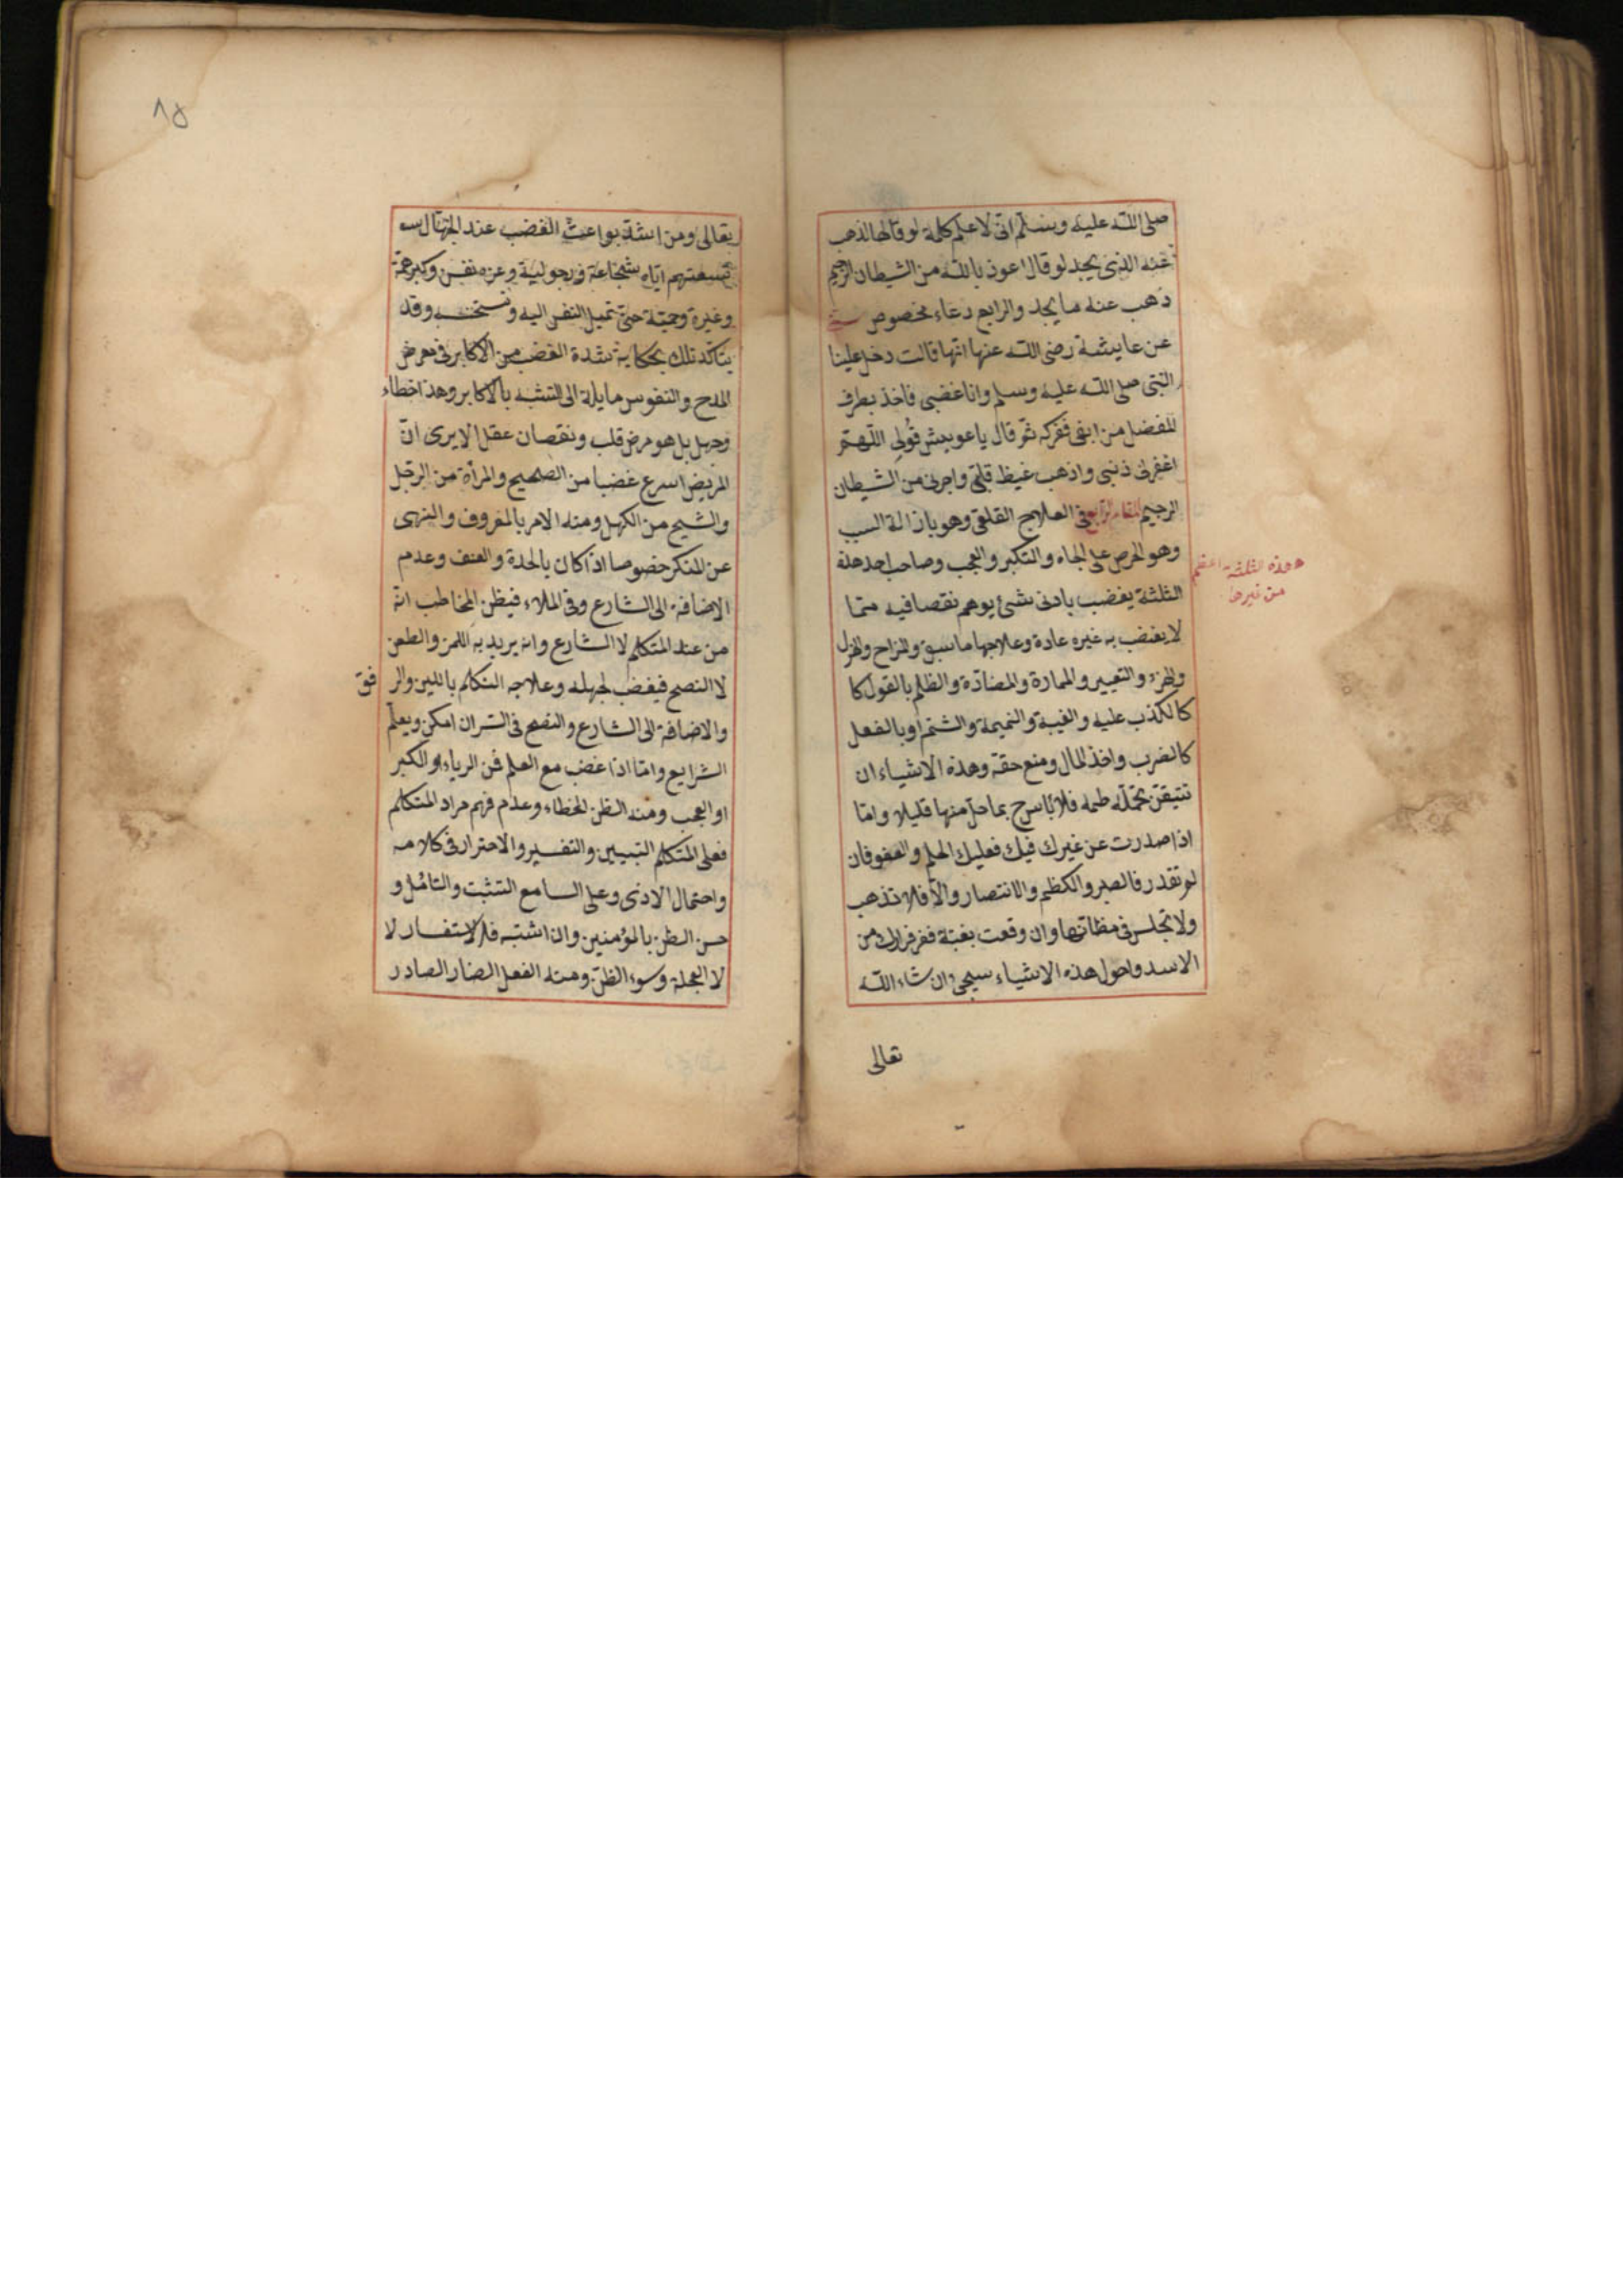 صلى الله عليه وسلم انى لاعلم كلمة لو قالها لذهب
عنه الذى يجد لو قال اعوذ بالله من الشيطان الرجيم
ذهب عنه ما يجد والرابع دعاء مخصوص
عن عايشة رضى الله عنها انها قالت دخل علينا
النبى صلى الله عليه وسلم وانا غضبى فاخذ بطرف
المفضل من انفى ففركه ثم قال يا عويش قولى اللهم
اغفر لى ذنبى واذهب غيظ قلبى واجرنى من الشيطان
الرجيم المقام الرابع فى العلاج القلعى وهو بازالة السبب
وهو الحرص على الجاه والتكبر والعجب وصاحب احد هذه
الثلثة يغضب بادنى شئ يوهم نقصا فيه مما
لا يغضب به غيره عادة وعلاجها ما سبق والمزاح والهزل
والهزء والتعيير والممارة والمضادة والظلم بالقول كا
كالكذب عليه والغيبة والنميمة والشتم او بالفعل
كالضرب واخذ المال ومنع حقه وهذه الاشياء ان
تتيقن تحمله فلا باس بما حل منها قليلا واما
اذا صدرت عن غيرك فيك فعليك الحلم والعفو فان
لم تقدر فالصبر والكظم والانتصار والا فلا تذهب
ولا تجلس فى مظانها وان وقعت بغتة ففر فرارك من
الاسد واحول هذه الاشياء سيجئ ان شاء الله
هذه الثلثة اعظم
من غيرها
تعالى
٨٥
تعالى ومن اشد بواعث الغضب عند الجهال
تسميتهم اياه شجاعة ورجولية وعزة نفس وكبر همة
وغيرة وحمية حتى تميل النفس اليه وتستحسنه وقد
يتاكد ذلك بحكاية شدة الغضب من الاكابر فى معرض
المدح والنفوس مايلة الى التشبه بالاكابر وهذا خطاء
وجهل بل هو مرض قلب ونقصان عقل الا يرى ان
المريض اسرع غضبا من الصحيح والمرأة من الرجل
والشيح من الكهل ومنه الامر بالمعروف والنهى
عن المنكر خصوصا اذا كان بالحدة والعنف وعدم
الاضافة الى الشارع وفى الملاء فيظن المخاطب انه
من عند المتكلم لا الشارع وانه يريد به اللمز والطعن
لا النصح فيغضب لجهله وعلاجه التكلم باللين والر
فق
والاضافة الى الشارع والنصح فى السر ان امكن ويعلم
الشرايع واما اذا غضب مع العلم فمن الرياء او الكبر
او العجب ومنه الظن الخطاء وعدم فهم مراد المتكلم
فعلى المتكلم التبيين والتفسير والاحتراز فى كلامه
واحتمال الاذى وعلى السامع التثبت والتامل و
حسن الظن بالمؤمنين وان اشتبه فالاستفسار لا
لا العجلة وسوء الظن ومنه الفعل الضار الصادر